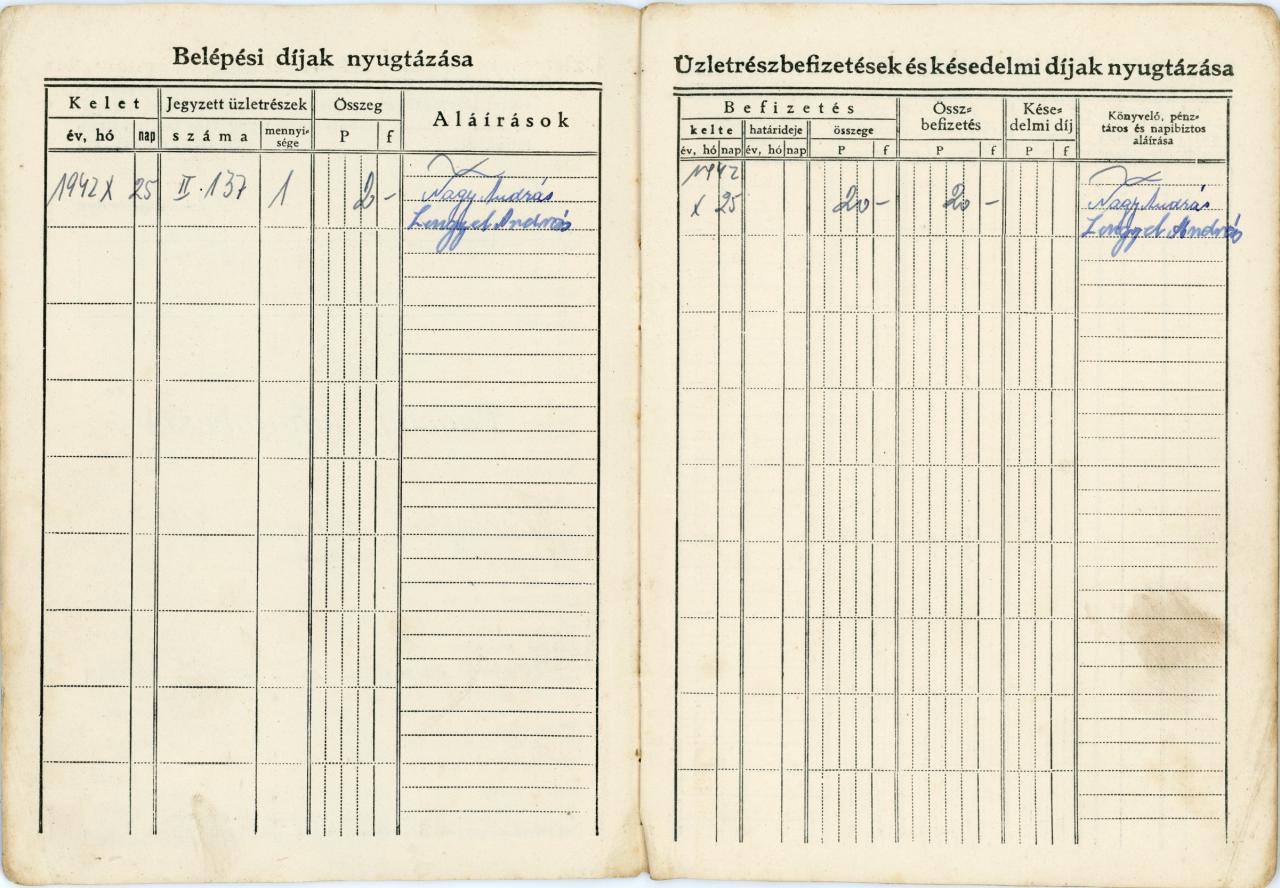 Belépési díjak nyugtázása
Kelet Jegyzett üzletrészek Összeg Aláírások
év, hó nap száma mennyi-
sége P f
1942 X 25 II. 137 1 2 -
Nagy András
Lengyel András
Üzletrészbefizetések és késedelmi díjak nyugtázása
Befizetés Össz-
befizetés Kése-
delmi díj Könyvelő, pénz-
táros és napibiztos
aláírása
kelte határideje összege
év, hó nap év, hó nap P f P f P f
1942
X 25 20 - 20 -
Nagy András
Lengyel András